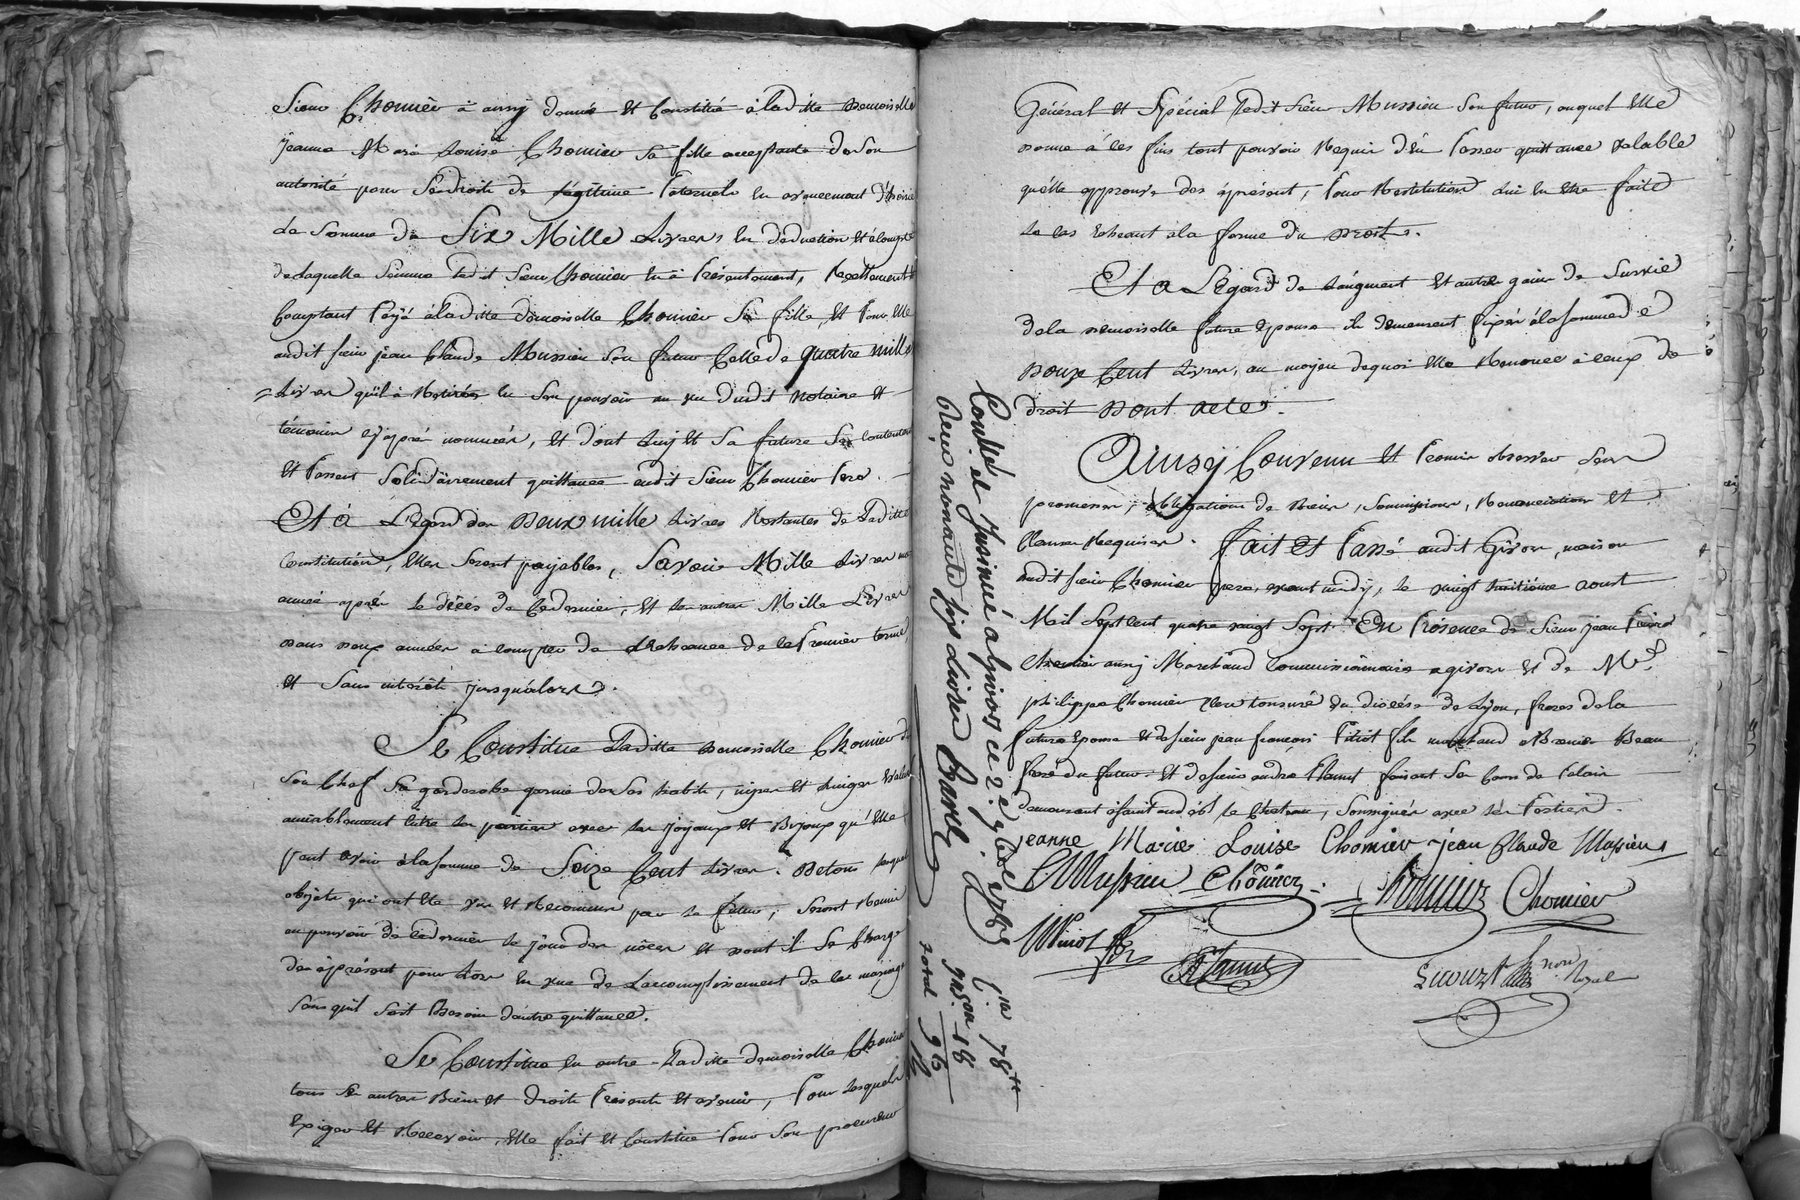 Sieur Chomier a aussy donné et Constitué à laditte demoiselle
jeanne Marie Louise Chomier sa fille acceptante de son
autorité pour ses droits de légitime Paternels en avancement d'hoirie
La Somme de Six Mille Livres, En déduction et à Compte
de laquelle Somme ledit Sieur Chomier en a Présentement, Réellement
Comptant Payé à laditte demoiselle Chomier Sa fille, et Pour Elle
audit sieur jean Claude Mussieu Son futur Celle de quatre mille
Livres qu'il à Retirée en Son pouvoir au vu dudit Notaire et
témoins cy après nommés, et dont Luy et Sa future Se contentent
et Passent Solidairement quittance audit Sieur Chomier Pere.
Et à L'Egard des Deux mille Livres Restantes de Laditte
Constitution, Elles Seront payables, Savoir Mille Livres une
année après le décès de Ce dernier, et les autres Mille Livres
dans deux années à compter de L'Echeance de Ce Premier terme
et Sans intérêts jusqu'alors.
Se Constitue Laditte Demoiselle Chomier de
Son Chef Sa garderobe garnie de Ses habits, nipes et Linges Evalués
amiablement Entre les parties avec les Joyaux et Bijoux qu'Elle
peut avoir à la Somme de Seize Cent Livres. De tous lesquels
objets qui ont été vus et Reconnus par le futur, Seront Remis
au pouvoir de Ce dernier le jour des nôces et dont il Se Charge
dès à présent pour Lors En vue de L'accomplissement de Ce mariage
Sans qu'il Soit Besoin d'autre quittance.
Se Constitue En outre Laditte demoiselle Chomier
tous Ses autres Biens et droits Présents et avenir, Pour lesquels
Exiger et Recevoir, Elle fait et Constitue Pour Son procureur
Général et Spécial Ledit Sieur Mussieu Son futur, auquel Elle
Donne à Ces fins tout pouvoir Requis d'En Passer quittance Valable
qu'elle approuve dès àprésent, Pour Restitution Lui En être faite
Le Cas Echeant à la forme du Droit.
Et a L'Egard de Laugment et autre gain de Survie
de la Demoiselle future Epouse ils demeurent fixés à la Somme de
Douze Cent Livres, au moyen de quoi Elle Renonce à Ceux de
droit Dont Acte.
Ainsy Convenu et Promis observer Sous
promesses, obligations de Biens, Soumissions, Renonciations et
Clauses Requises. fait Et Passé audit Givors, maison
dudit sieur Chomier pere, avant midy, le vingt huitième aoust
Mil Sept Cent quatre vingt Sept En Présence de Sieur jean Pierre
Chomier aussy Marchand Commissionnaire à givors et de Mr.
philippe Chomier Clerc tonsuré du diocèse de Lyon, freres de la
future Epouse et de Sieur jean françois Pitiot fils marchand Beau
frere du futur. et de Sieur andré Flamet faisant
demeurant à Saint andéol le Chateau, Soussignés avec les Parties.
jeanne Marie Louise Chomier jean Claude Mussieu
C Mussieu Chomier Chomier Chomier
Pitiot fils A Flamet
not. Royal
Conllé et Insinué a Givors ce 2.e 7bre 1787
Reçu nonante six livres Barrel
C. 78 tt
Ins.on 18
total 96 tt